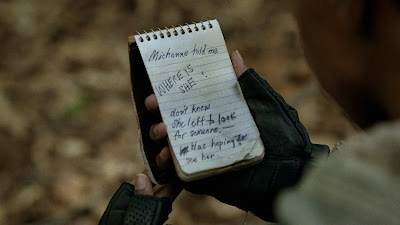 Michonne told me
WHERE IS
SHE?
don't know
She left to look
for someone.
Was hoping to
see her